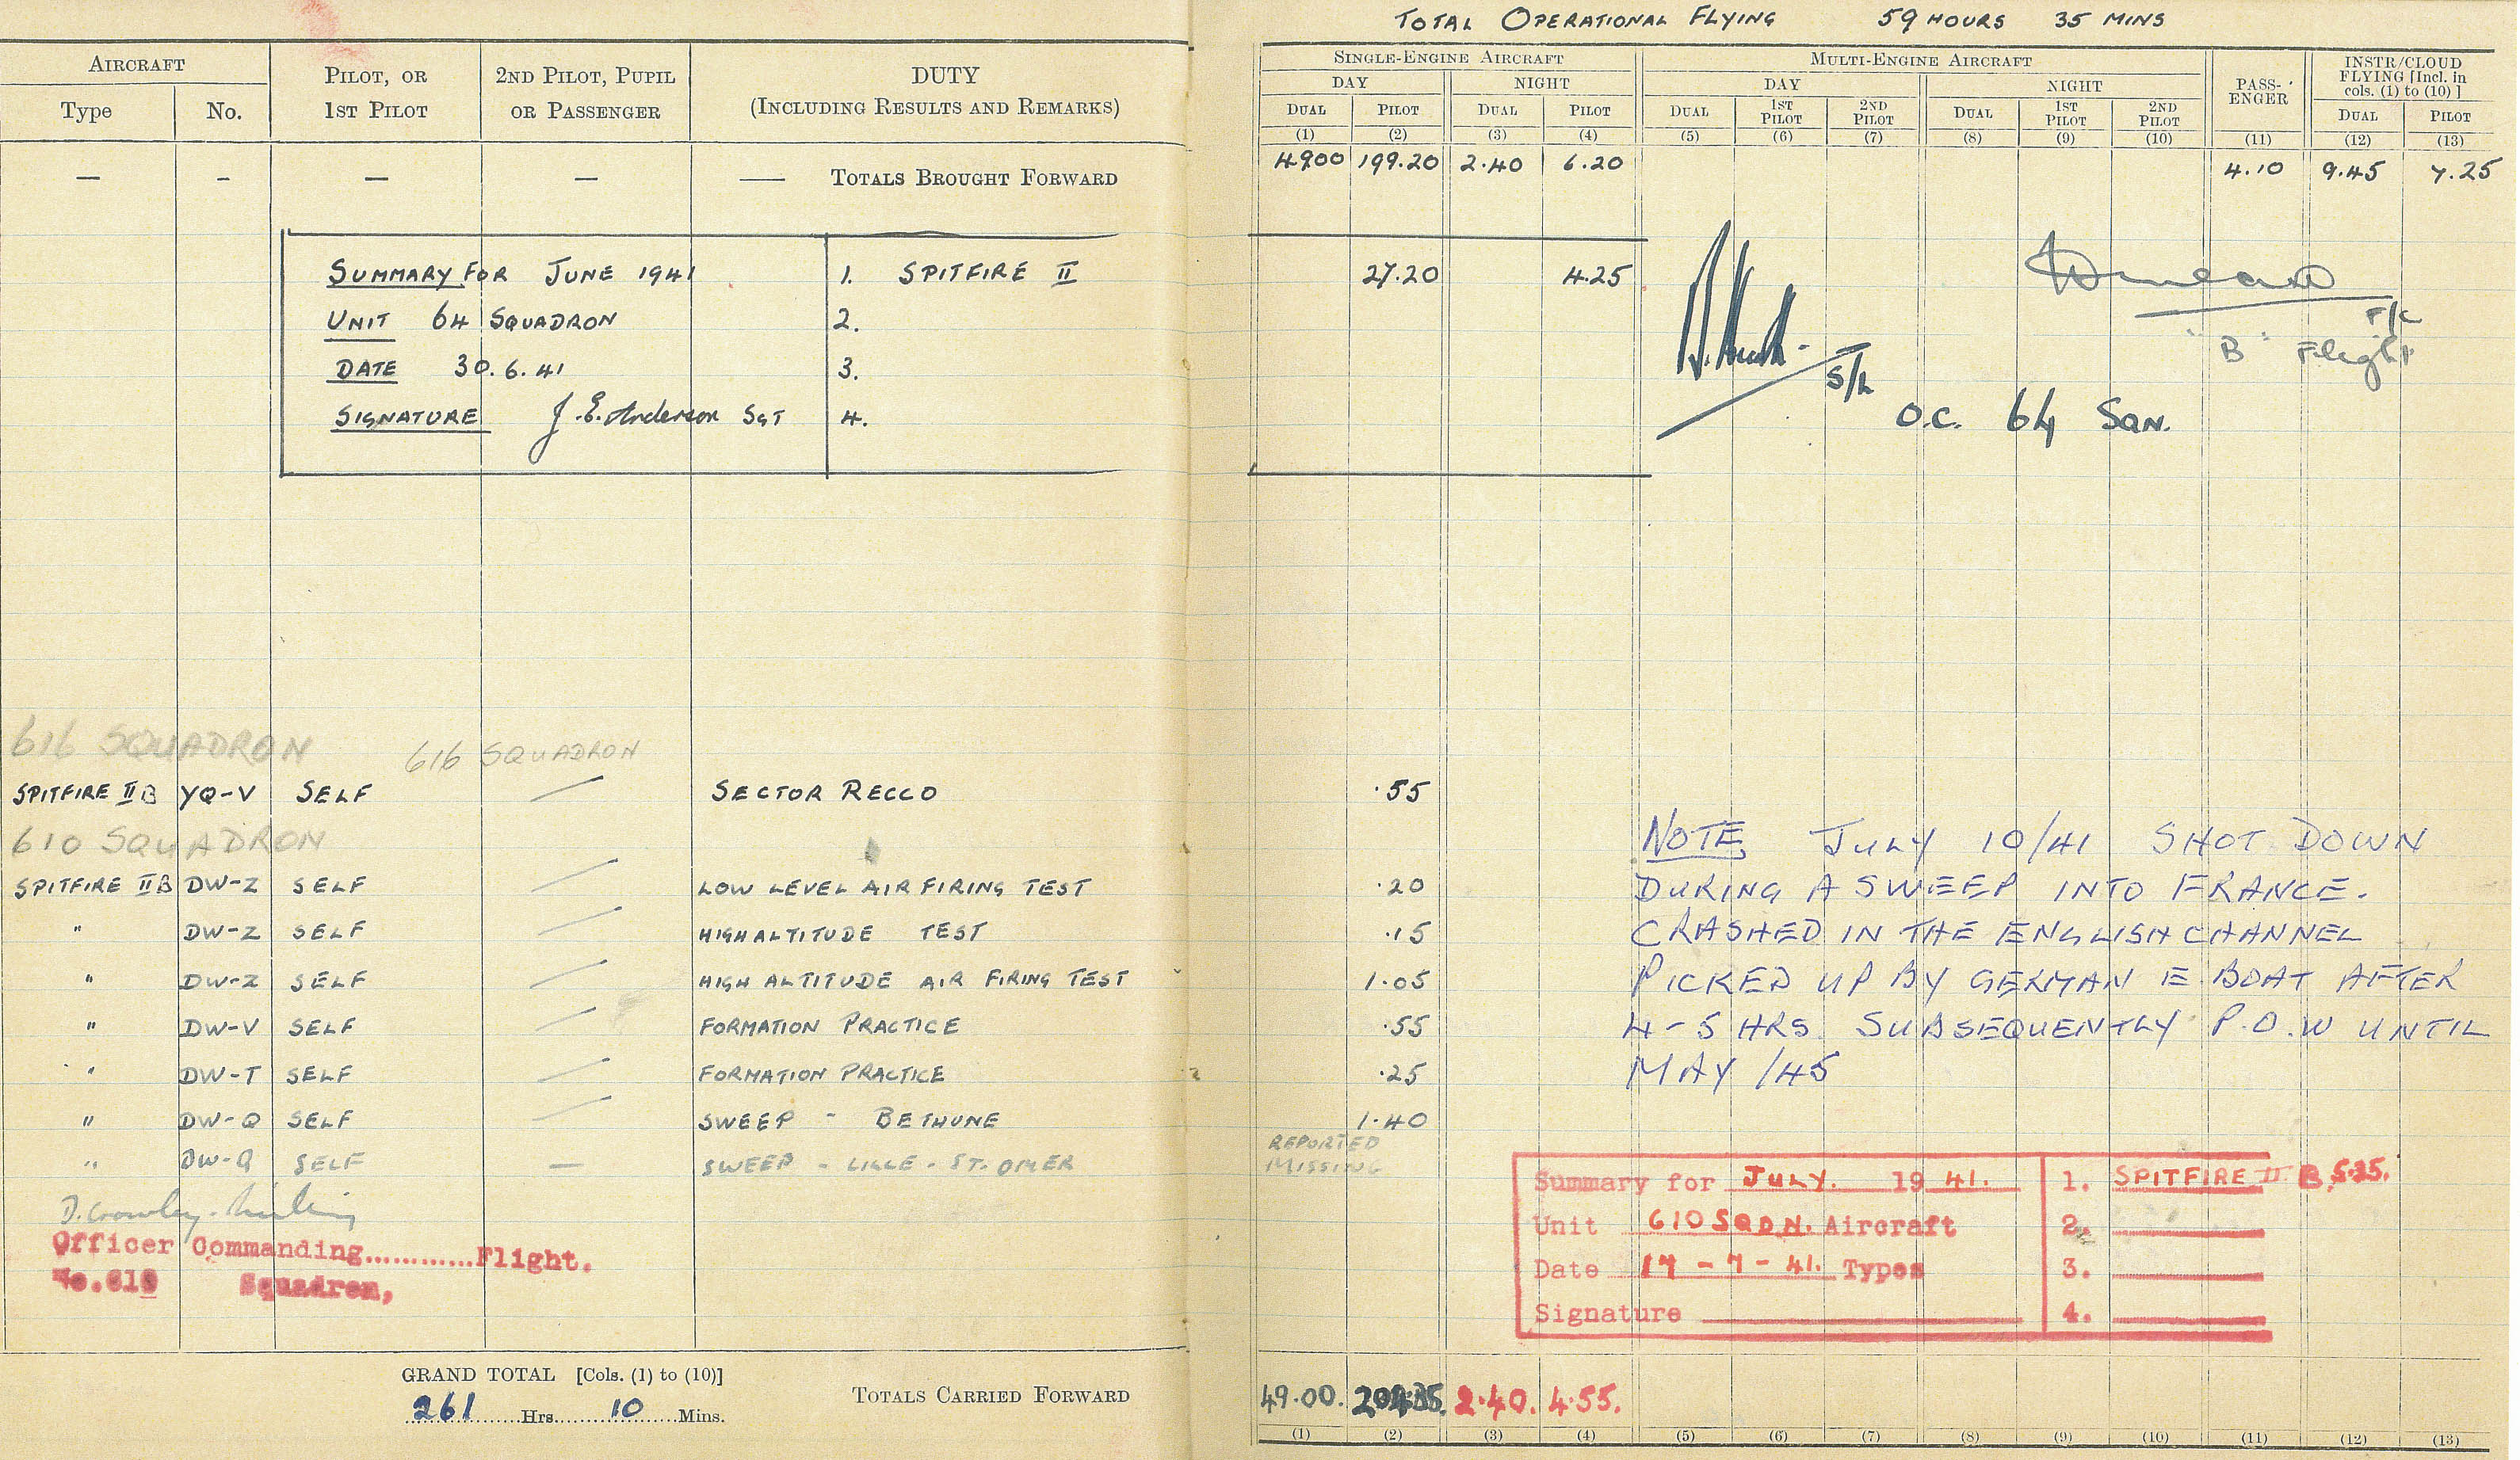 TOTAL OPERATIONAL FLYING 59 HOURS 35 MINS
AIRCRAFT
Type No.
PILOT, OR
1ST PILOT
2ND PILOT, PUPIL
OR PASSENGER
DUTY
(INCLUDING RESULTS AND REMARKS)
SINGLE-ENGINE AIRCRAFT
DAY NIGHT
DUAL PILOT DUAL PILOT
(1) (2) (3) (4)
MULTI-ENGINE AIRCRAFT
DAY NIGHT
DUAL 1ST PILOT 2ND PILOT DUAL 1ST PILOT 2ND PILOT
(5) (6) (7) (8) (9) (10)
PASS-
ENGER
(11)
INSTR/CLOUD
FLYING [Incl. in
cols. (1) to (10) ]
DUAL PILOT
(12) (13)
— - — — — TOTALS BROUGHT FORWARD 49.00 199.20 2.40 6.20 4.10 9.45 7.25
SUMMARY FOR JUNE 1941 1. SPITFIRE II 27.20 4.25
UNIT 64 SQUADRON 2.
DATE 30.6.41 3.
SIGNATURE J.E. Anderson SGT 4.
S/L
O.C. 64 SQN.
F/L
"B" Flight
616 SQUADRON 616 SQUADRON
SPITFIRE IIB YQ-V SELF SECTOR RECCO .55
610 SQUADRON
SPITFIRE IIB DW-Z SELF LOW LEVEL AIR FIRING TEST .20
" DW-Z SELF HIGH ALTITUDE TEST .15
" DW-Z SELF HIGH ALTITUDE AIR FIRING TEST 1.05
" DW-V SELF FORMATION PRACTICE .55
" DW-T SELF FORMATION PRACTICE .25
" DW-Q SELF SWEEP - BETHUNE 1.40
" DW-Q SELF — SWEEP - LILLE - ST. OMER REPORTED MISSING
NOTE, JULY 10/41 SHOT DOWN
DURING A SWEEP INTO FRANCE.
CRASHED IN THE ENGLISH CHANNEL
PICKED UP BY GERMAN E. BOAT AFTER
4-5 HRS. SUBSEQUENTLY P.O.W UNTIL
MAY /45
D. Crowley-Milling
Officer Commanding............Flight.
No.610 Squadron,
Summary for JULY. 1941. 1. SPITFIRE II B 5.35.
Unit 610 SQDN. Aircraft 2.
Date 17-7-41. Types 3.
Signature 4.
GRAND TOTAL [Cols. (1) to (10)]
261 Hrs. 10 Mins.
TOTALS CARRIED FORWARD 49.00. 2.40. 4.55.
(1) (2) (3) (4) (5) (6) (7) (8) (9) (10) (11) (12) (13)